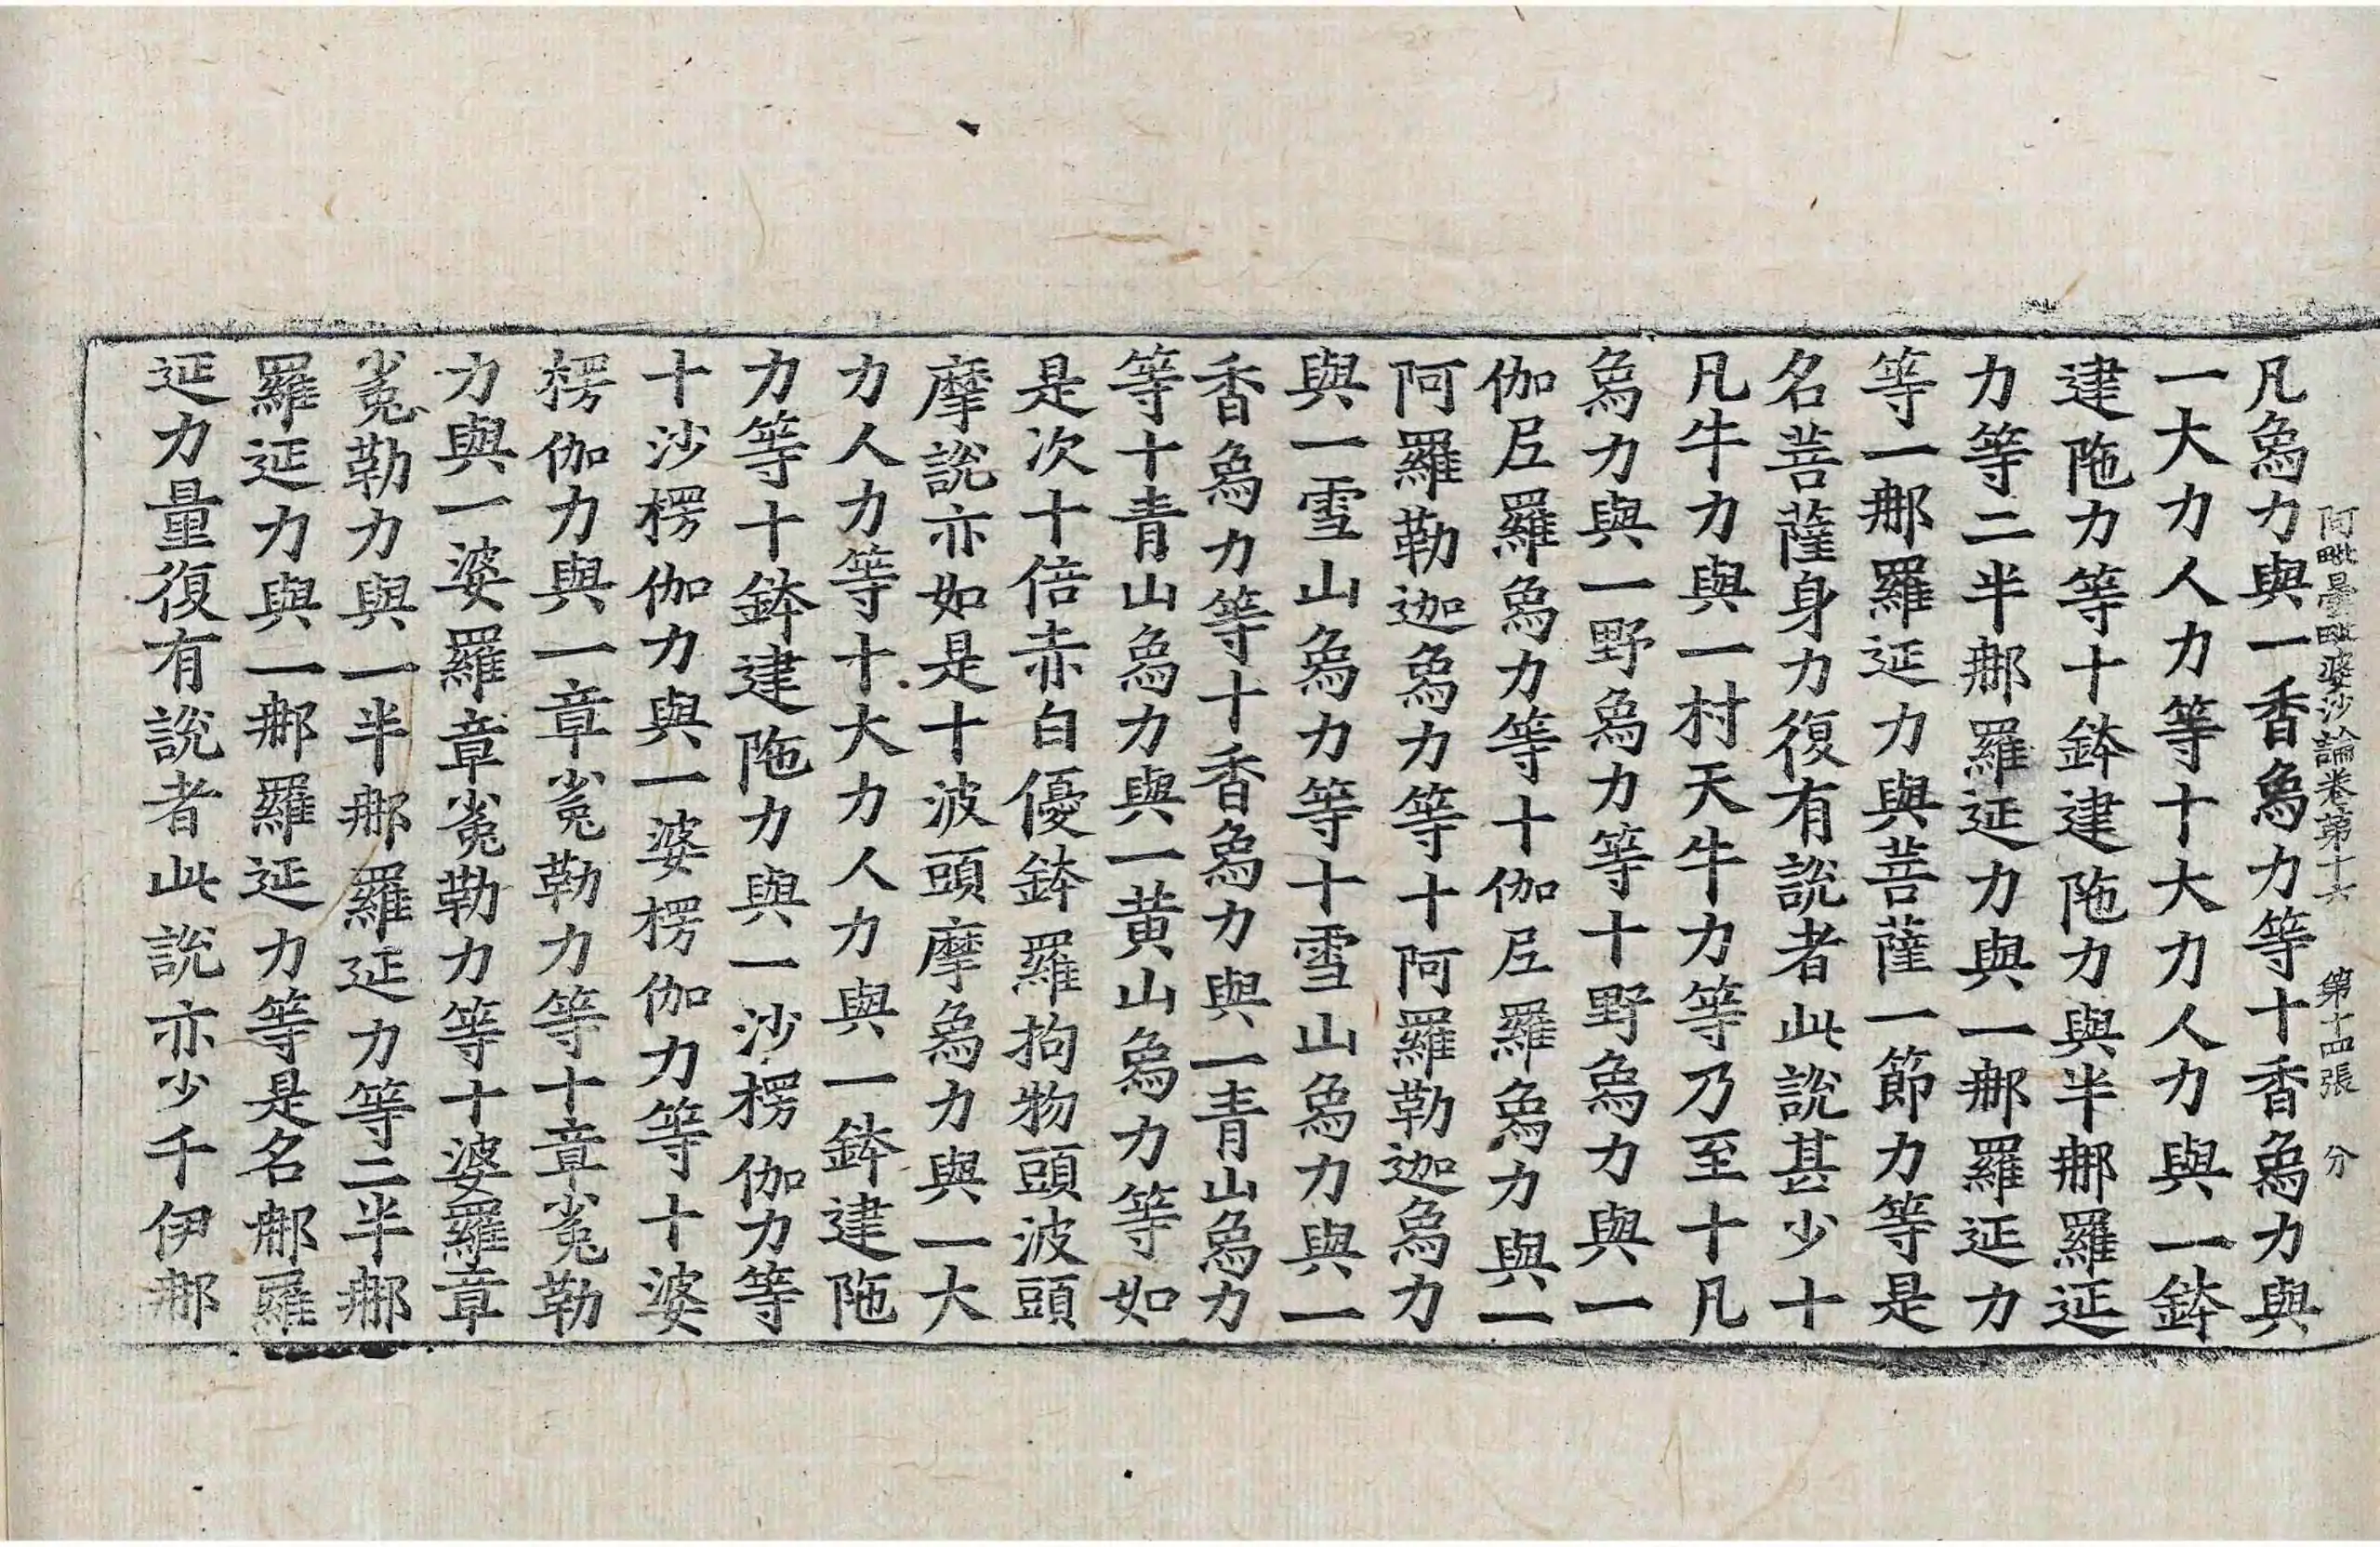 阿毗曇毗婆沙論卷第十六 第十四張 分
凡象力與一香象力等十香象力與
一大力人力等十大力人力與一鉢
建陁力等十鉢建陁力與半那羅延
力等二半那羅延力與一那羅延力
等一那羅延力與菩薩一節力等是
名菩薩身力復有說者此說甚少十
凡牛力與一村天牛力等乃至十凡
象力與一野象力等十野象力與一
伽尼羅象力等十伽尼羅象力與一
阿羅勒迦象力等十阿羅勒迦象力
與一雪山象力等十雪山象力與一
香象力等十香象力與一青山象力
等十青山象力與一黃山象力等如
是次十倍赤白優鉢羅拘物頭波頭
摩說亦如是十波頭摩象力與一大
力人力等十大力人力與一鉢建陁
力等十鉢建陁力與一沙楞伽力等
十沙楞伽力與一婆楞伽力等十婆
楞伽力與一章㝹勒力等十章㝹勒
力與一婆羅章㝹勒力等十婆羅章
㝹勒力與一半那羅延力等二半那
羅延力與一那羅延力等是名那羅
延力量復有說者此說亦少千伊那